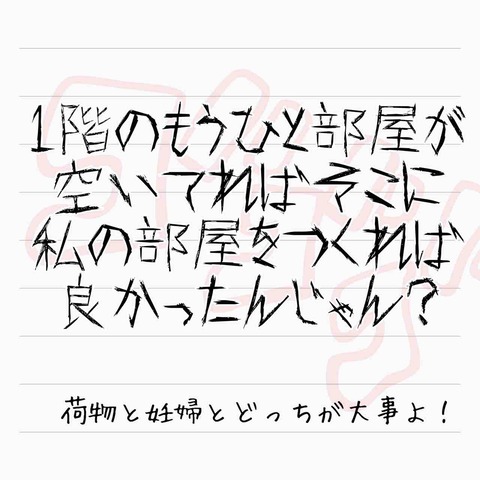 1階のもうひと部屋が
空いてればそこに
私の部屋をつくれば
良かったんじゃん?
荷物と妊婦とどっちが大事よ!